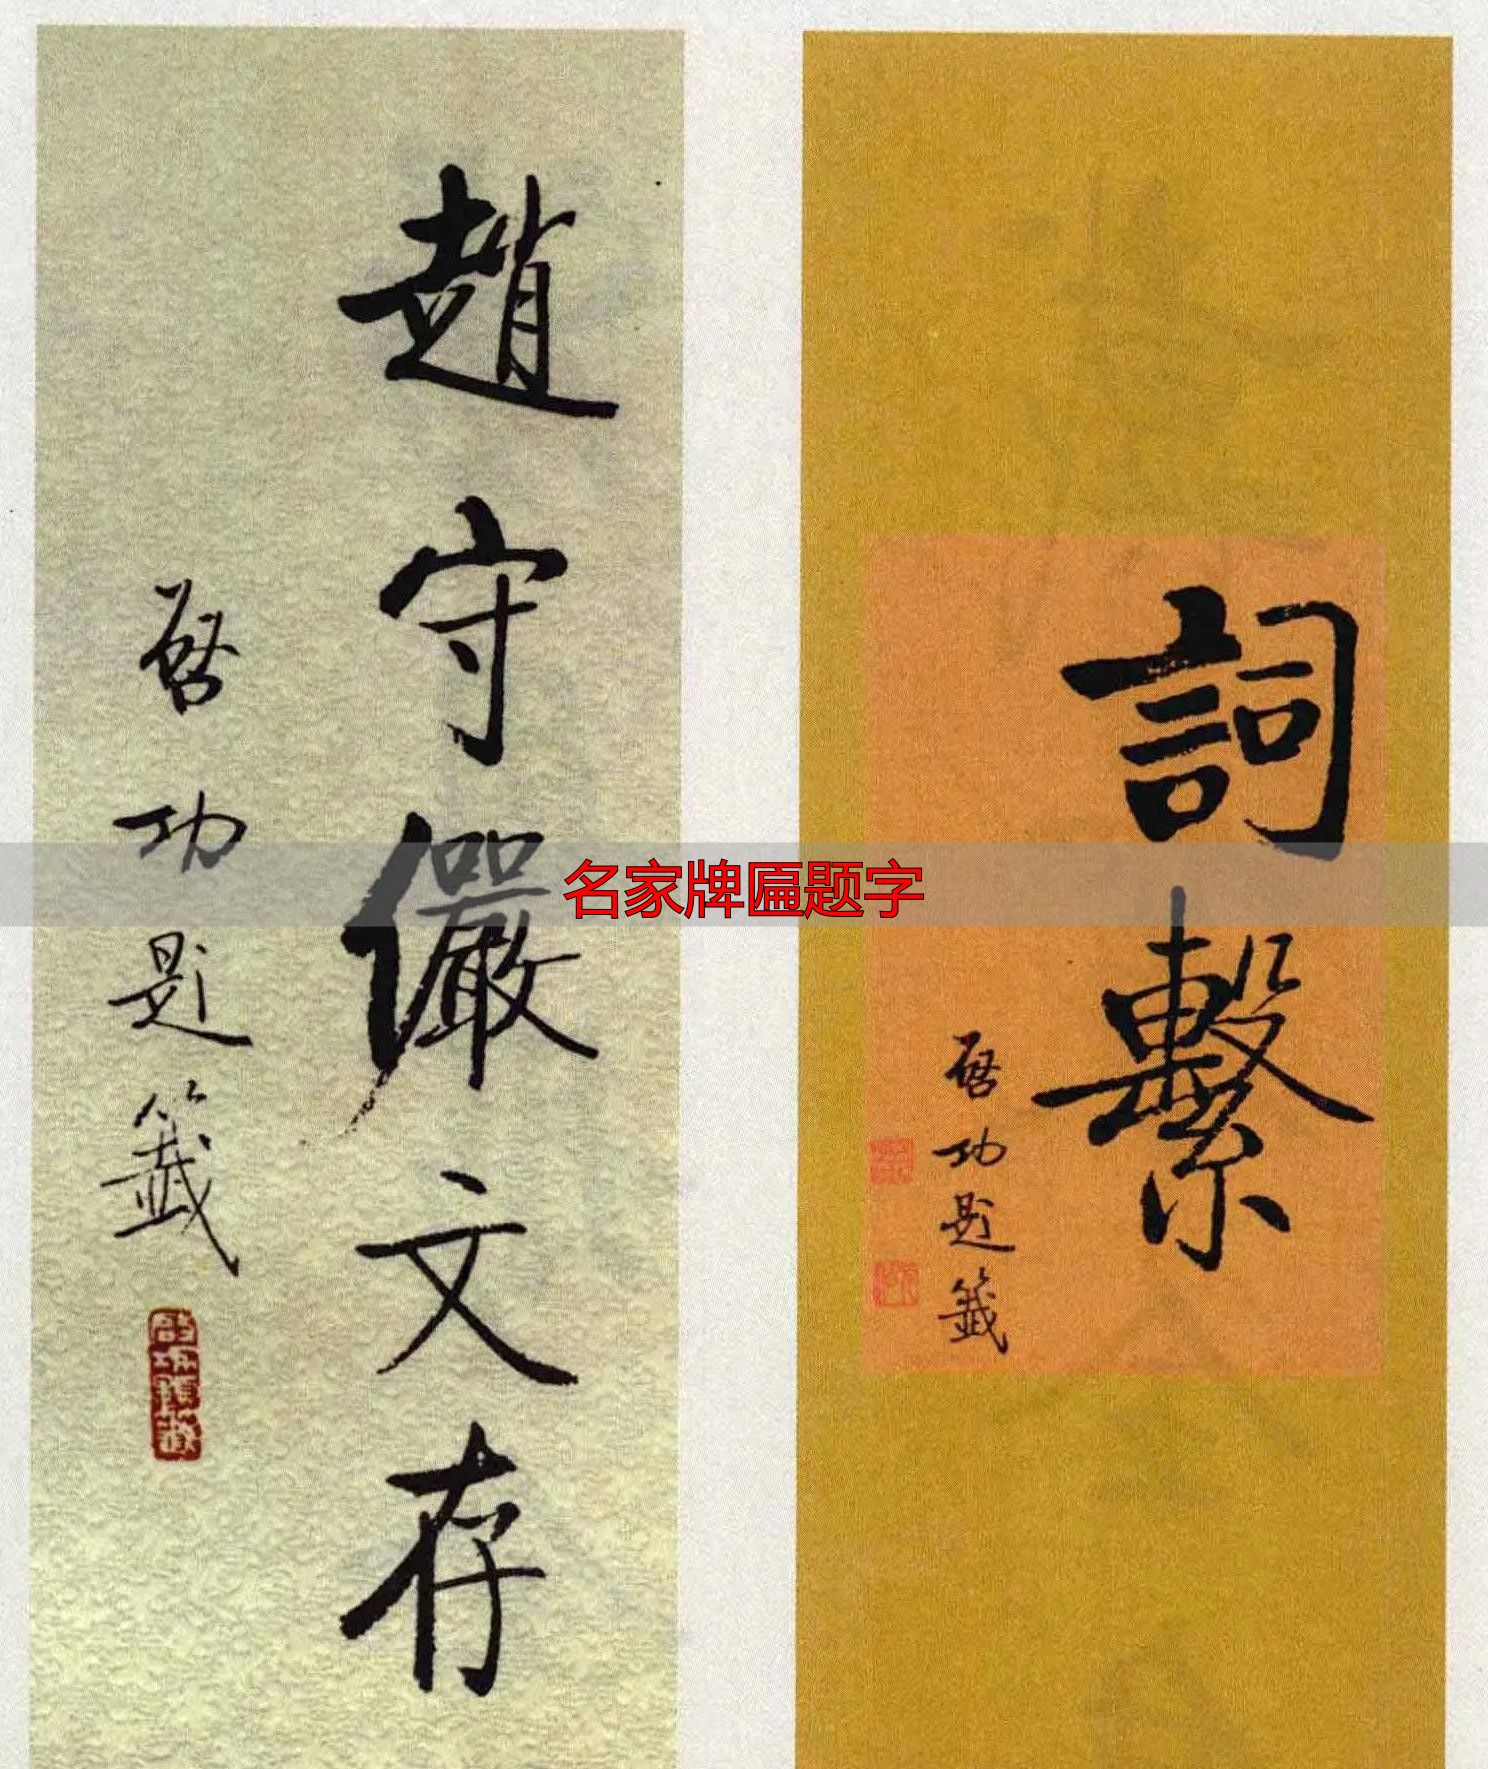 詞繫
啓功題籤
趙守儼文存
啓功題籤
名家牌匾题字